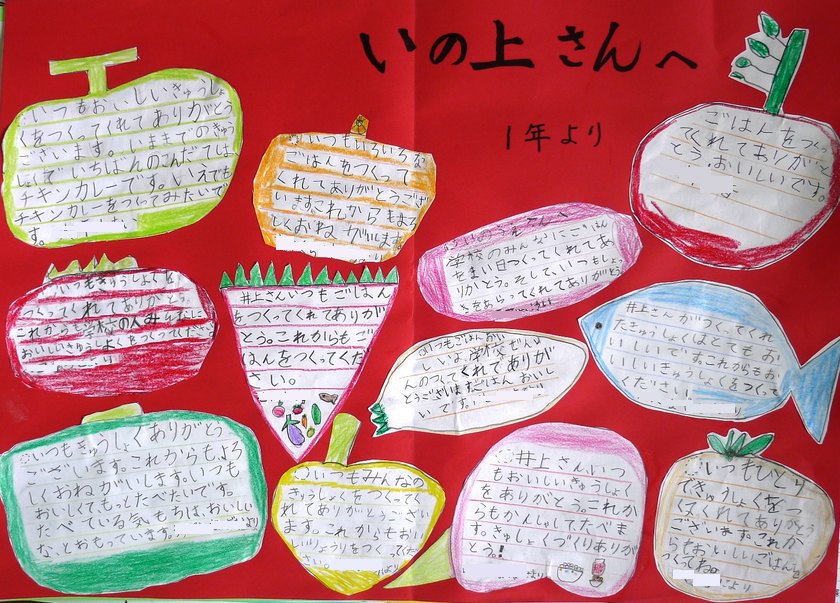 いの上さんへ
1年より
いつもおいしいきゅうしょ
くをつくってくれてありがとう
ございます。いままでのきゅう
しょくでいちばんのこんだては、
チキンカレーです。いえでも
チキンカレーをつくってみたいで
す。
いつもいろいろな
ごはんをつくって
くれてありがとうござ
います。これからもよろ
しくおねがいします。
ごはんをつくっ
てくれてありが
とう。おいしいです。
学校のみんなにごはん
をまい日つくってくれてあ
りがとう。そして、いつもしょっ
きをあらってくれてありがとう
いつもきゅうしょくを
つくってくれてありがとう
これからも学校の人みんなに
おいしいきゅうしょくをつくってください。
井上さんいつもごはん
をつくってくれてありが
とう。これからもご
はんをつくってくだ
さい。
いつもごはんおい
しいよ。学校ぜんい
んのつくてくれてありが
とうございますごはんおいし
いです。
井上さんがつくってくれ
たきゅうしょくはとてもお
いしいですこれからもお
いしいきゅうしょくをつくって
ください。
いつもきゅうしょくありがとう
ございます。これからもよろ
しくおねがいします。いつも
おいしくてもっとたべたいです。
たべている気もちは、おいしい
な、とおもっています。
より
いつもみんなの
きゅうしょくをつくってく
れてありがとうござい
ます。これからもおい
しいりょうりをつくってくださ
い。
より
井上さんいつ
もおいしいきゅうしょく
をありがとう。これか
らもかんしゃしてたべま
す。きゅうしょくづくりありが
とう。!
より
いつもひとり
できゅうしょくをつ
くってくれてありがとう
ございます。これか
らもおいしいごはんを
つくってね。
より